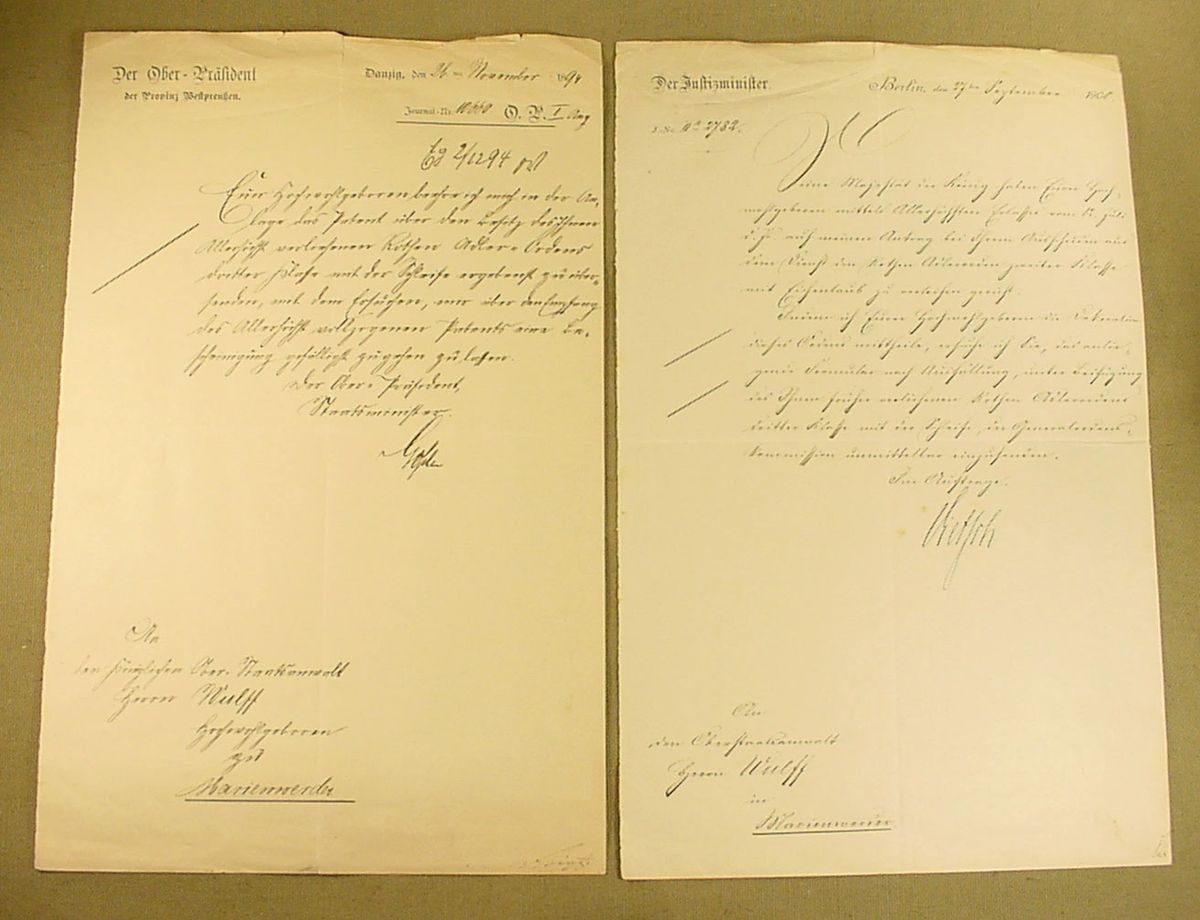 Der Ober-Präsident
der Provinz Westpreußen.
Danzig, den 26ten November 1894
Journal-Nr. 10660 O. P. I
Eg 2/12 94
Euer Hochwohlgeboren beehre ich mich in der An-
lage das Patent über den Besitz des Ihnen
Allerhöchst verliehenen Rothen Adler-Ordens
dritter Klasse mit der Schleife ergebenst zu über-
senden, mit dem Ersuchen, mir über den Empfang
des Allerhöchst vollzogenen Patents eine Be-
scheinigung gefälligst zugehen zu lassen.
Der Ober-Präsident,
Staatsminister.
An
den Königlichen Ober-Staatsanwalt
Herrn Wulff
Hochwohlgeboren
zu
Marienwerder
Der Justizminister.
Berlin, den 27ten September
2782.
Seine Majestät der König haben Euere Hoch-
wohlgeboren mittels Allerhöchsten Erlasses vom Juli
d. Js. auf meinen Antrag bei Ihrem Ausscheiden aus
dem Dienst den Rothen Adlerorden zweiter Klasse
mit Eichenlaub zu verleihen geruht.
Indem ich Euerer Hochwohlgeboren die Dekoration
dieses Ordens mittheile, ersuche ich Sie, das anlie-
gende Formular nach Ausfüllung, unter Beifügung
des Ihnen früher verliehenen Rothen Adlerordens
dritter Klasse mit der Schleife, der Generalordens-
kommission unmittelbar einzusenden.
Im Auftrage.
Vietsch
An
den Oberstaatsanwalt
Herrn Wulff
in
Marienwerder